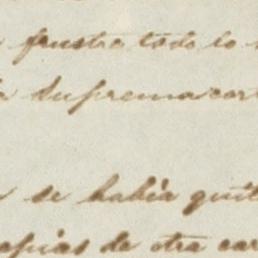 frustra todo lo
Suprema cort
se habia quit
copias de otra car